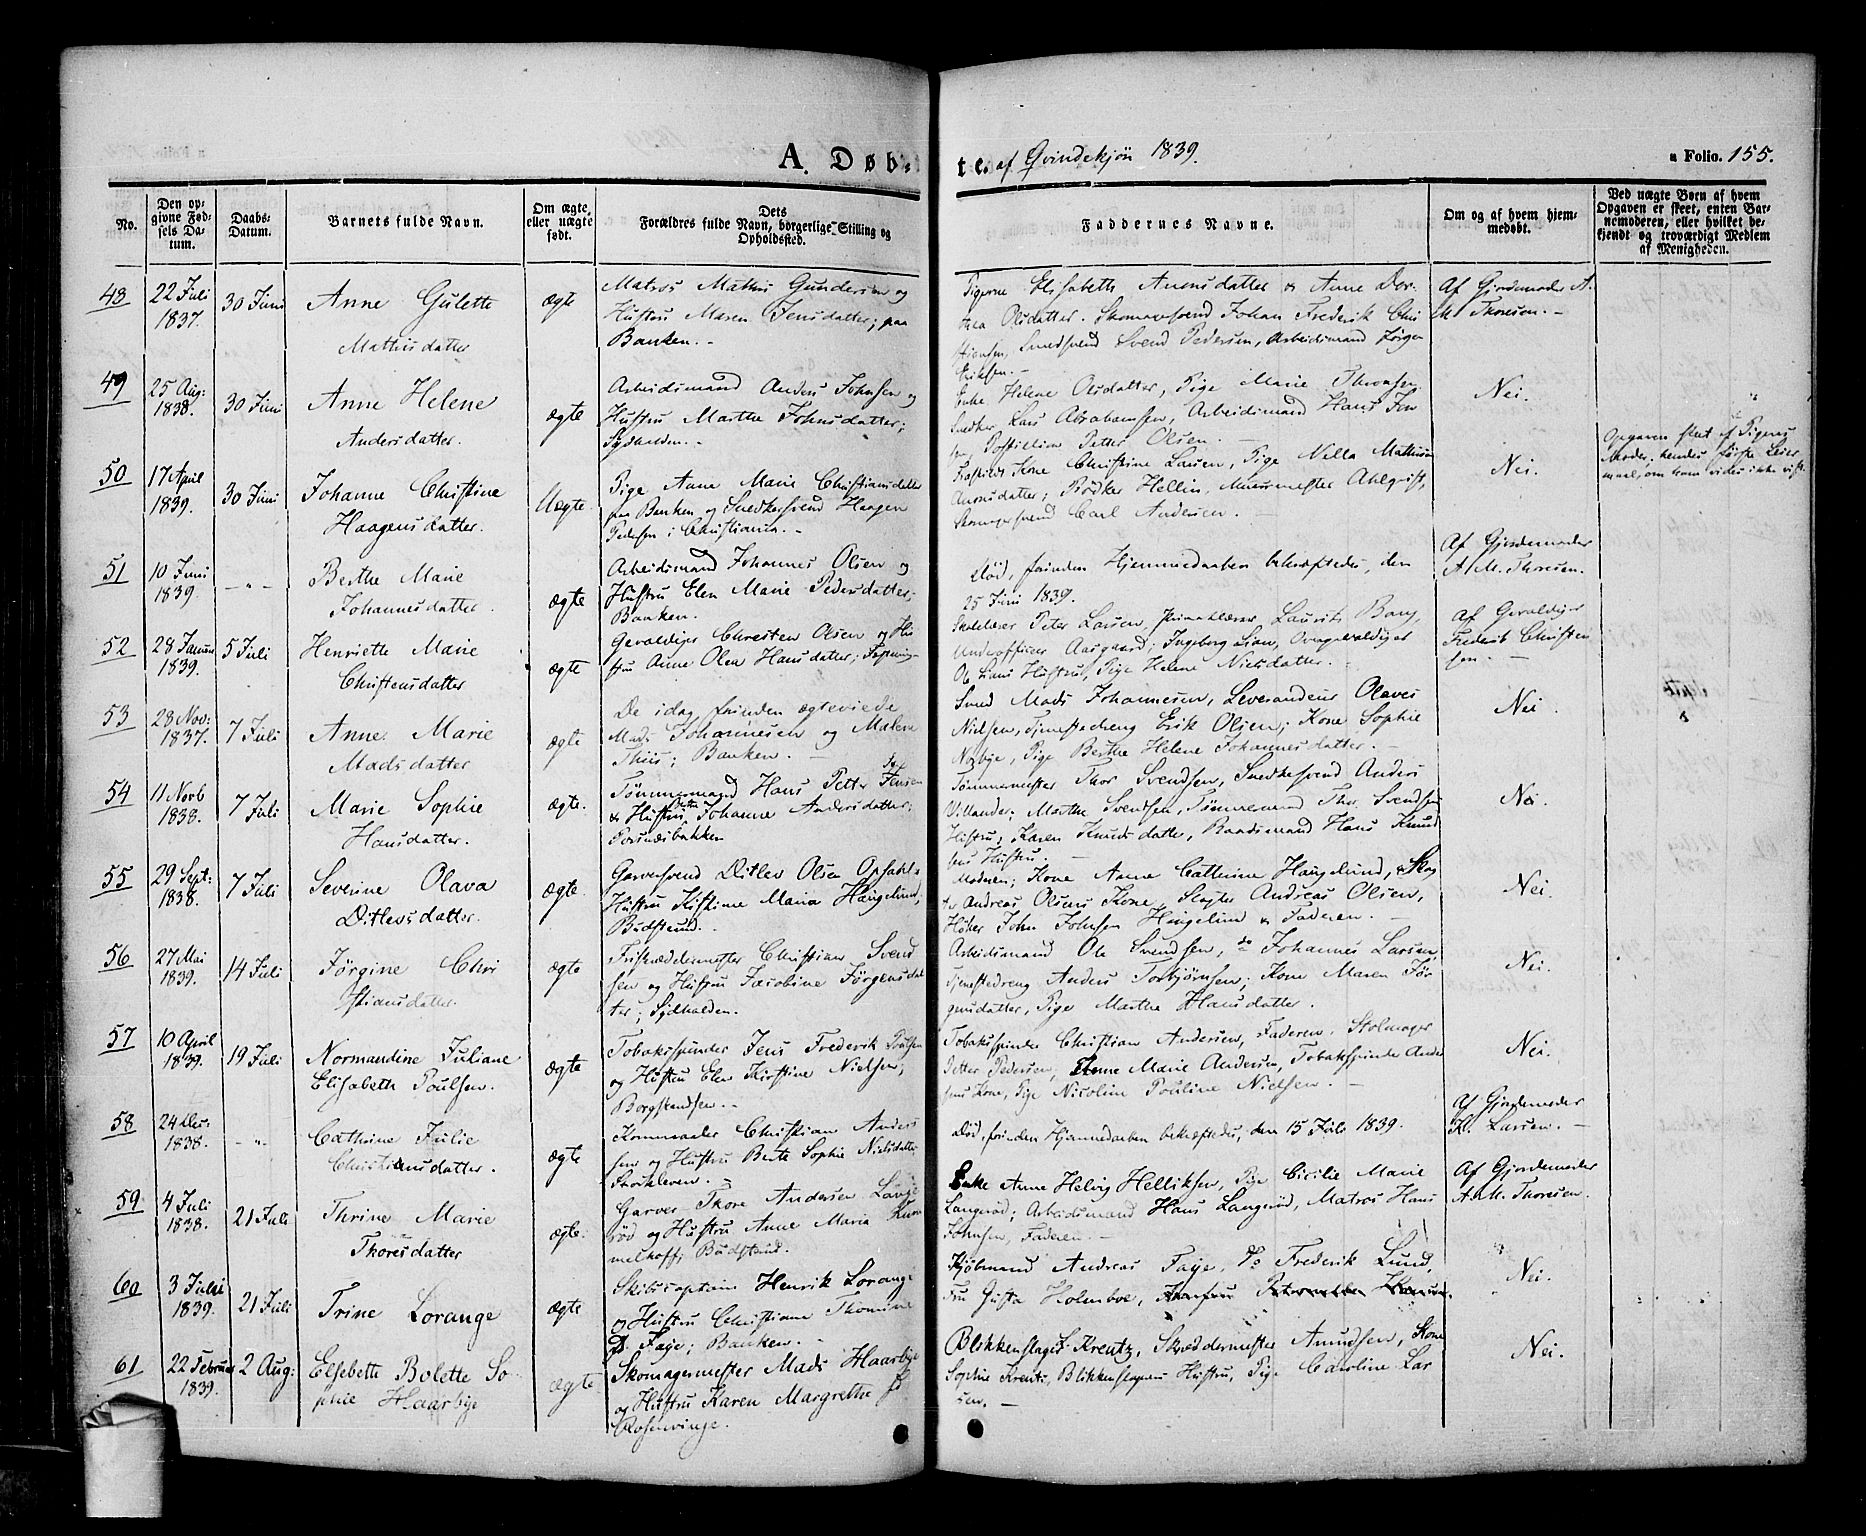 A. Døbte. af Qvindekjøn 1839.
a Folio. 155.
No.
Den opgivne Fødsels Datum.
Daabs-Datum.
Barnets fulde Navn.
Om ægte, eller uægte født.
Forældres fulde Navn, Dets borgerlige Stilling og Opholdssted.
Faddernes Navne.
Om og af hvem hjemmedøbt.
Ved uægte Børn af hvem Opgaven er skeet, enten Barnemoderen, eller hvilket bekjendt og troværdigt Medlem af Menigheden.
48
22 Juli
1837.
30 Juni
Anne Gulette
Mathisdatter
ægte
Matros Mathis Gundersen og
Hustru Maren Jensdatter; paa
Banken. -
Pigerne Elisabeth Amundsdatter & Anne Dor-
thea Olsdatter. Skomagersvend Johan Frederik Chri
stiensen, Smedsvend Svend Pedersen, Arbeidsmand Jørgen
Eriksen. -
Af Gjordemoder A.
M. Thoresen. -
49
25 Aug:
1838.
30 Juni
Anne Helene
Andersdatter.
ægte
Arbeidsmand Anders Johnsen og
Hustru Marthe Johnsdatter;
Sydhalden. -
Enke Helene Olsdatter, Pige Marie Thronsen
Snedker Lars Abrahamsen, Arbeidsmand Hans Jen
sen, Petter Olsen. -
Nei.
50
17 April
1839.
30 Juni
Johanne Christine
Haagensdatter.
Uægte
Pige Anne Marie Christiansdatter
paa Banken og Snedkersvend Haagen
Pedersen i Christiania. -
Kone Christine Larsen, Pige Nella Mathea
Amundsdatter; Bødker Hellin, Muurmester Ahlqvist,
Skomagersvend Carl Andersen. -
Nei.
Opgaven skeet af Pigens
Moder, hendes første Leier
maal, om hvem vides ikke viste
51
10 Juni
1839.
- " -
Berthe Marie
Johannesdatter.
ægte
Arbeidsmand Johannes Olsen og
Hustru Elen Marie Pedersdatter;
Banken.
død, forinden Hjemmedaaben bekræftedes, den
25 Juni 1839.
Af Gjordemoder
A. M. Thoresen.
52
28 Januar
1839.
5 Juli
Henriette Marie
Christensdatter
ægte
Gevaldiger Christen Olsen og Hu
stru Anne Olea Hansdatter; Fæstning-
Skolelærer Peter Larsen, Laurits Bang,
Underofficer Aasgaard; Ingeborg Lian, Overgevaldiger
Ole Lians Hustru, Pige Helene Nielsdatter.
Af Gevaldiger
Frederik Christen
sen. -
53
28 Nov:
1837.
7 Juli
Anne Marie
Madsdatter
ægte
De idag forinden ægteviede
Mads Johannesen og Malene
Thiis; Banken. -
Svend Mads Johannesen, Leverandeur Olaves
Nielsen, Tjenestedreng Erik Olsen; Kone Sophie
Norbye, Pige Berthe Helene Johannesdatter. -
Nei.
54
11 Novb
1838.
7 Juli
Marie Sophie
Hansdatter.
ægte.
Tømmermand Hans Petter Jensen
& Hustru Johanne Andersdatter;
Porsnæsbakken
Tømmermester Thor Svendsen, Snedkersvend Anders
Villander; Marthe Svendsen, Tømmermand Thor Svendsens
Hustru; Karen Knudsdatter, Baadsmand Hans Knud
sens Hustru. -
Nei.
55
29 Sept:
1838.
7 Juli
Severine Olava
Ditlevsdatter.
ægte.
Garversvend Ditlev Olsen Opsahl &
Hustru Kistine Maria Hængelund;
Budstrund. -
Moderen; Kone Anne Cathrine Hængelund, Slag
ter Andreas Olsens Kone, Slagter Andreas Olsen,
Høker John Johnsen Hingelund & Faderen. -
Nei.
56
27 Mai
1839.
14 Juli
Jørgine Chri
stiansdatter.
ægte
Friskræddermester Christian Svend
sen og Hustru Jacobine Jørgensdat
ter; Sydhalden.
Arbeidsmand Ole Svendsen, do Johannes Larsen,
Tjenestedreng Anders Torbjørnsen; Kone Maren Jør
gensdatter, Pige Marthe Hansdatter.
Nei.
57
10 April
1839.
19 Juli
Normandine Juliane
Elisabeth Poulsen.
ægte
Tobaksspinder Jens Frederik Poulsen
og Hustru Elen Kirstine Nielsen;
Tobakspinder Christian Andersen, Faderen. Stolmager
Petter Pedersen, Anne Marie Andersen, Tobaksspinder Ander
sens Kone, Pige Nicoline Pouline Nielsen. -
Nei.
58
24 Dec:
1838.
- " -
Cathrine Julie
Christiansdatter.
ægte
Christian Anders
sen og Hustru Berte Sophie Nielsdatter
død, forinden Hjemmedaaben bekræftedes, den 15 Juli 1839.
Af Gjordemoder
K. Larsen. -
59
4 Juli
1838.
21 Juli
Thrine Marie
Thoresdatter
ægte.
Garver Thore Andersen Lang
rød og Hustru Anne Maria Kum
melhoff; Budstrund.
Enke Anne Helvig Helliksen, Pige Cicilie Marie
Langrød; Arbeidsmand Hans Langrød, Matros Hans
Johnsen, Faderen. -
Af Gjordemoder
A. M. Thoresen.
60
3 Julii
1839.
21 Juli
Trine Lorange
ægte
Skibscaptein Henrik Lorange
og Hustru Christiane Thomine
Faye; Banken. -
Kjøbmand Andreas Faye, Do Frederik Lund,
Fru Gusta Holmboe,
Nei.
61
22 Februar
1839.
2 Aug:
Elsebette Bolette So-
phie Haarbye
ægte
Skomagermester Mads Haarbye
og Hustru Karen Margrethe
Rosenvinge.
Blikkenslager Kreutz, Skræddermester Amundsen, Kone
Sophie Kreutz, Blikkenslagers Hustru, Pige Caroline Lar
sen. -
Nei.